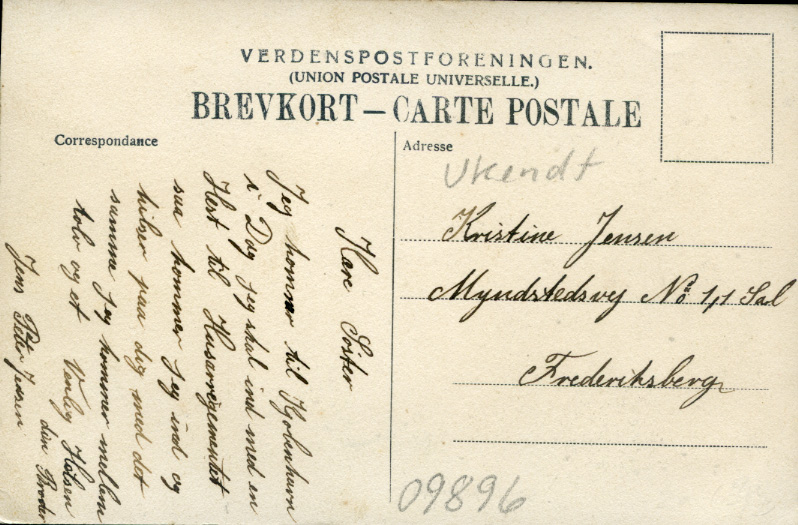 VERDENSPOSTFORENINGEN.
(UNION POSTALE UNIVERSELLE.)
BREVKORT – CARTE POSTALE
Correspondance
Adresse
Ukendt
Kristine Jensen
Myndstedsvej No 1,1 Sal
Frederiksberg
Kære Søster
Jeg kommer til Kjøbenhavn
i Dag jeg skal ind med en
Hest til Husarregimentet
saa kommer jeg ind og
hilser paa dig med det
samme jeg kommer mellem
tolv og et Venlig Hilsen
din Broder
Jens Peter Jensen
09896